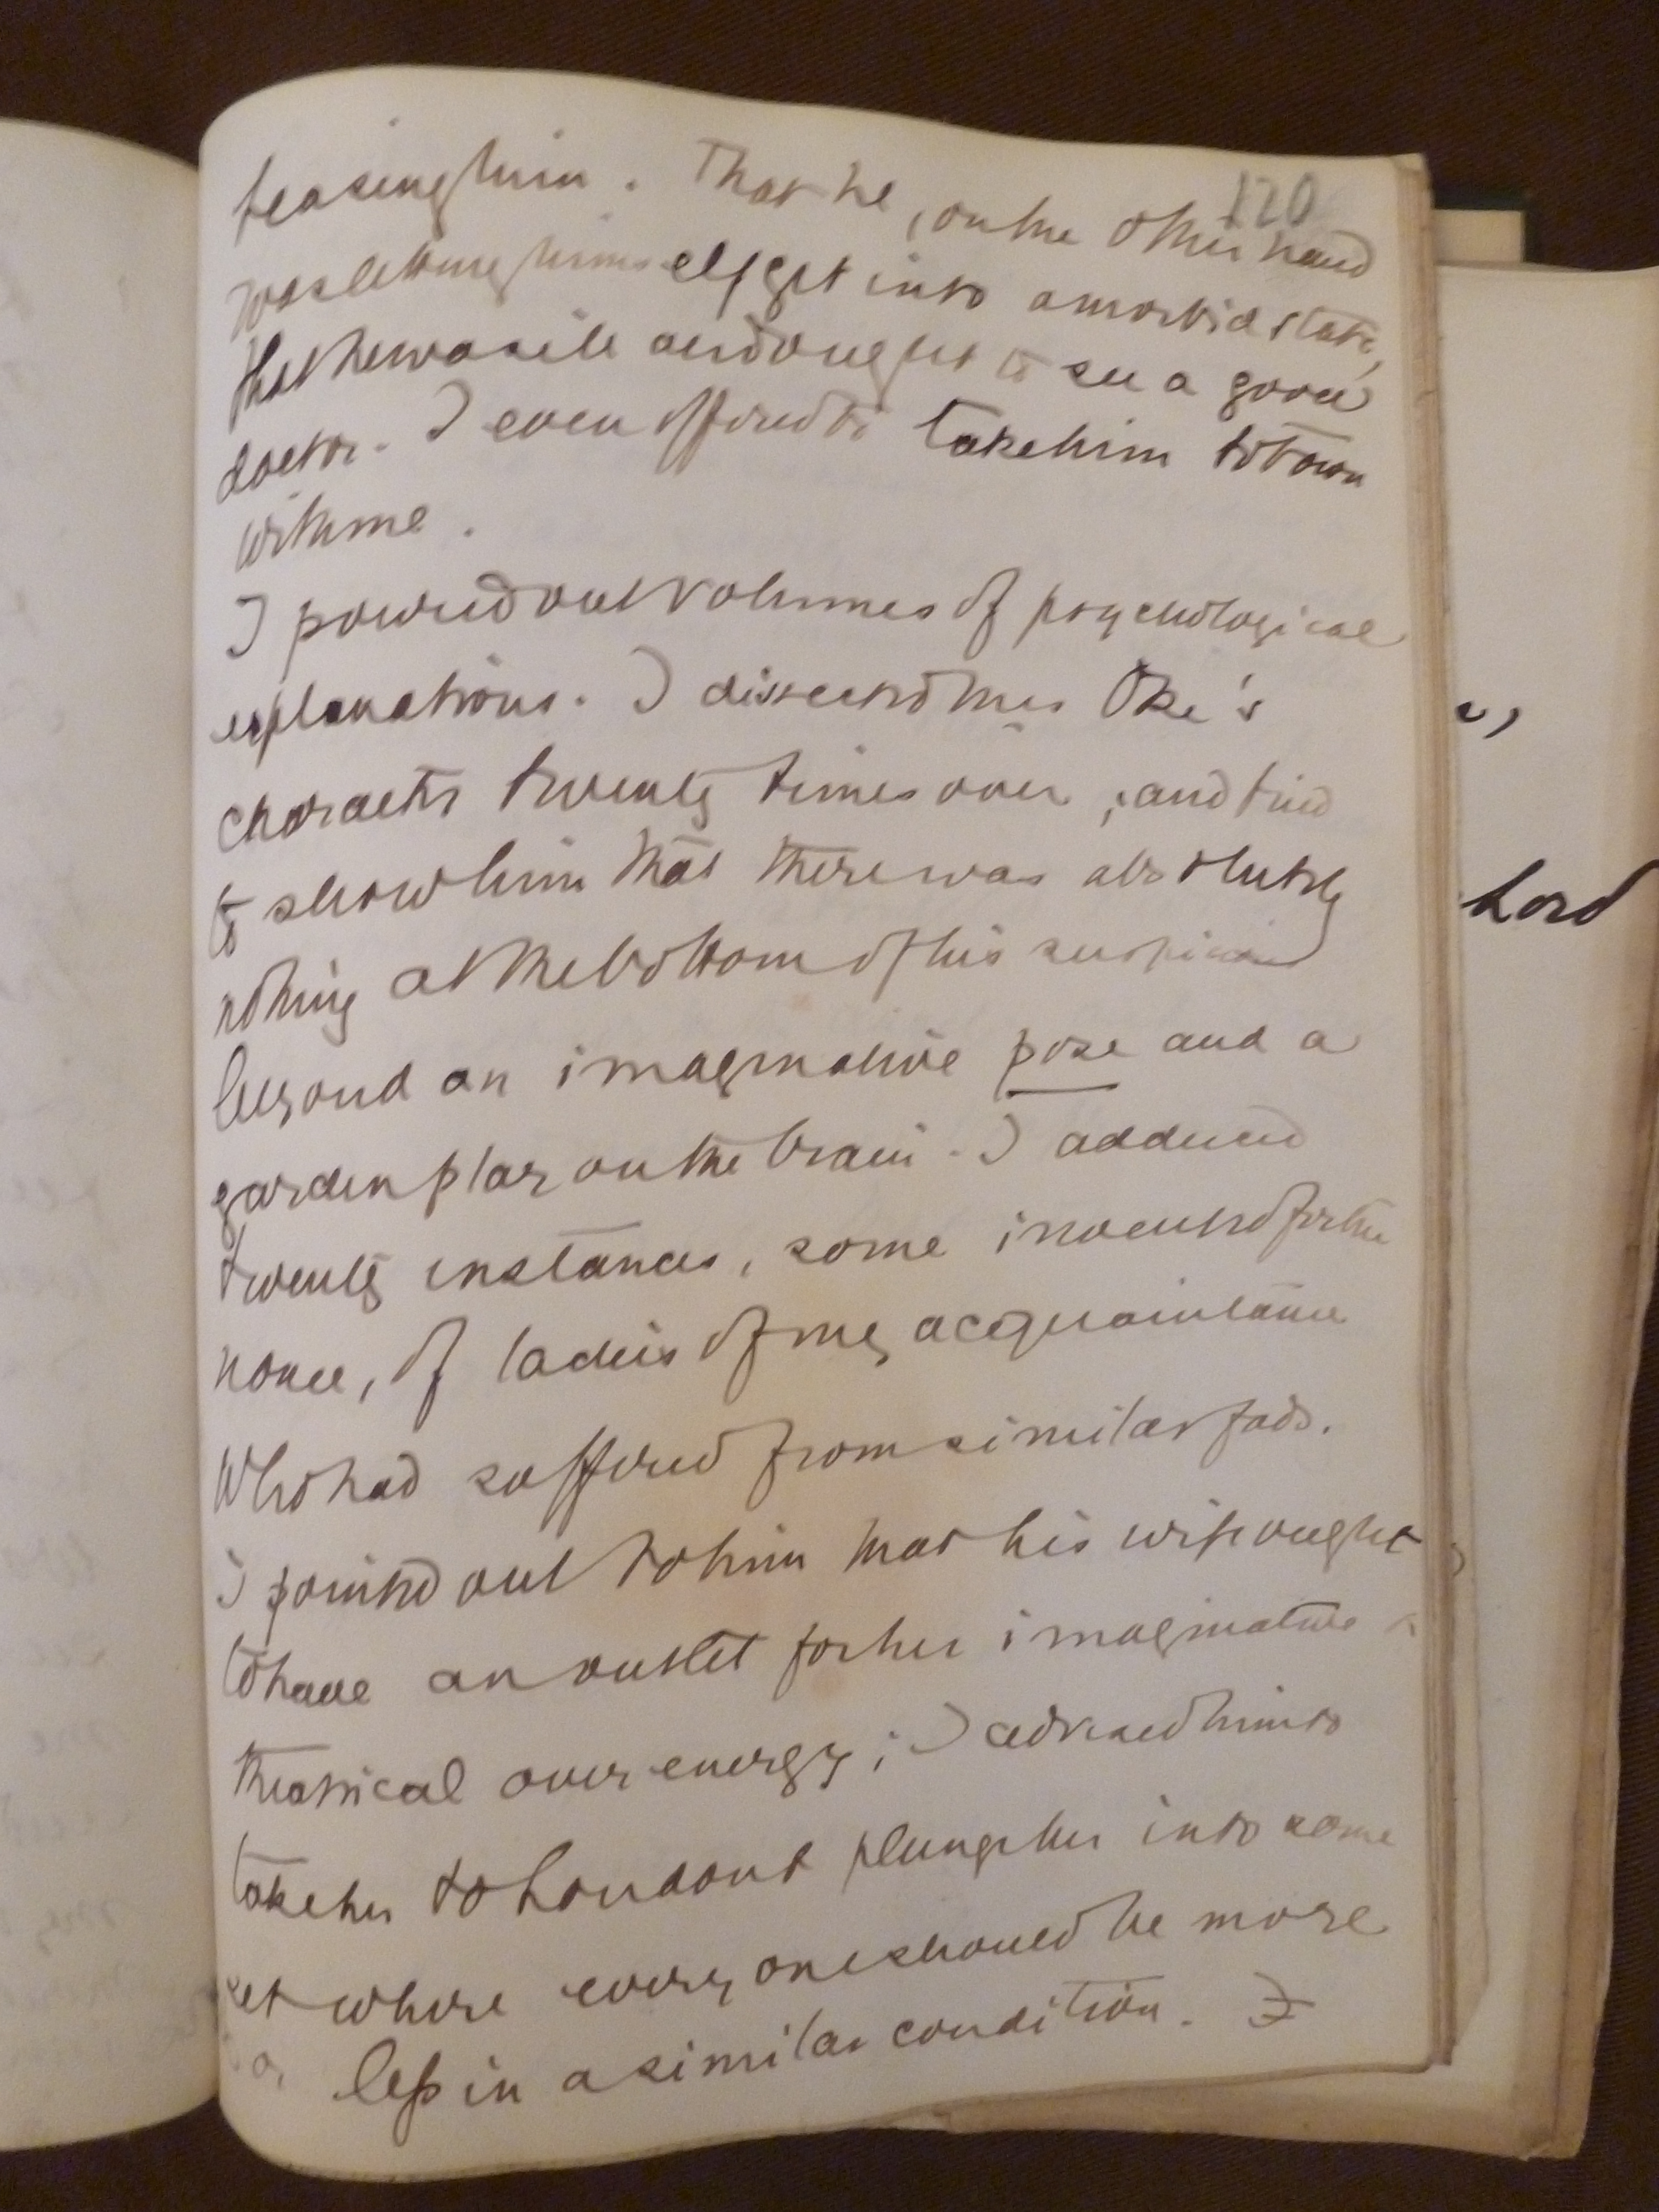 120
teasing him. That he, on the other hand
was letting himself get into a morbid state,
that he was ill and ought to see a good
doctor. I even offered to take him to town
with me.
I poured out volumes of psychological
explanations. I dissected Mrs Oke's
character twenty times over, and tried
to show him that there was absolutely
nothing at the bottom of his suspicions
beyond an imaginative pose and a
garden play on the brain. I adduced
twenty instances, some invented for the
nonce, of ladies of my acquaintance
who had suffered from similar fads.
I pointed out to him that his wife ought
to have an outlet for her imaginative &
theatrical over energy; I advised him to
take her to London & plunge her into some
set where every one should be more
or less in a similar condition.
Lord